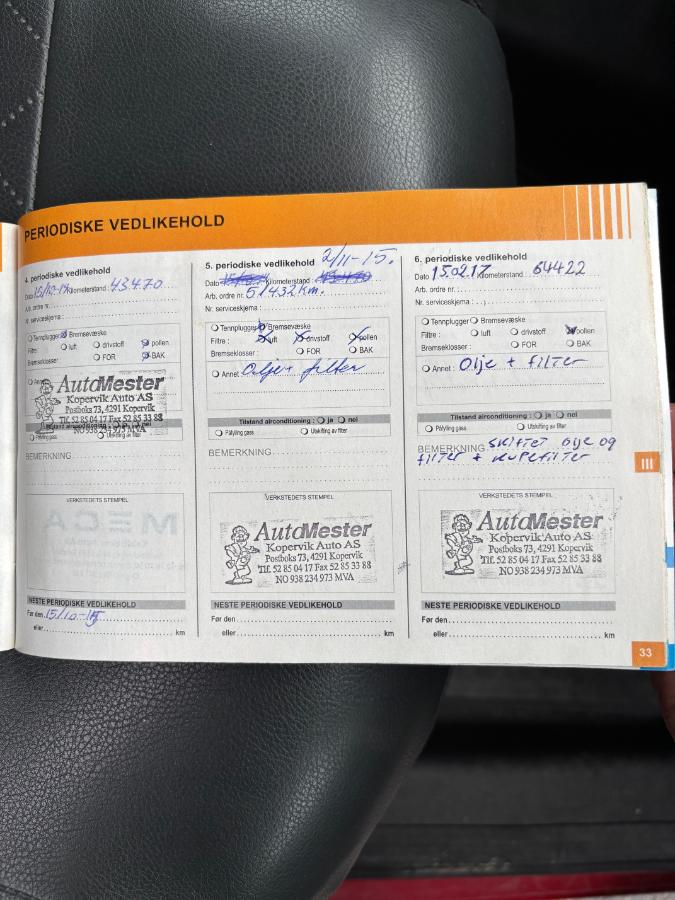 PERIODISKE VEDLIKEHOLD
4. periodiske vedlikehold
Dato 15/10-14 Kilometerstand : 43470
Arb. ordre nr. :
Nr. serviceskjema :
Tennplugger Bremsevæske
Filtre : luft drivstoff pollen
Bremseklosser : FOR BAK
AutoMester
Kopervik Auto AS
Postboks 73, 4291 Kopervik
Tlf. 52 85 04 17 Fax 52 85 33 88
NO 938 234 973 MVA
Påfylling gass Utskifting av filter
BEMERKNING
VERKSTEDETS STEMPEL
MECA
NESTE PERIODISKE VEDLIKEHOLD
Før den 15/10-15
eller km
5. periodiske vedlikehold 2/11-15.
Dato Kilometerstand :
Arb. ordre nr. : 51432 km.
Nr. serviceskjema :
Tennplugger Bremsevæske
Filtre : luft drivstoff pollen
Bremseklosser : FOR BAK
Annet : Olje + filter
Tilstand airconditioning : ja nei
Påfylling gass Utskifting av filter
BEMERKNING
VERKSTEDETS STEMPEL
AutoMester
Kopervik Auto AS
Postboks 73, 4291 Kopervik
Tlf. 52 85 04 17 Fax 52 85 33 88
NO 938 234 973 MVA
NESTE PERIODISKE VEDLIKEHOLD
Før den
eller km
6. periodiske vedlikehold
Dato 15.02.17 Kilometerstand : 64422
Arb. ordre nr. :
Nr. serviceskjema :
Tennplugger Bremsevæske
Filtre : luft drivstoff pollen
Bremseklosser : FOR BAK
Annet : Olje + filter
Tilstand airconditioning : ja nei
Påfylling gass Utskifting av filter
BEMERKNING skiftet olje og
filter + kupefilter
VERKSTEDETS STEMPEL
AutoMester
Kopervik Auto AS
Postboks 73, 4291 Kopervik
Tlf. 52 85 04 17 Fax 52 85 33 88
NO 938 234 973 MVA
NESTE PERIODISKE VEDLIKEHOLD
Før den
eller km
III
33